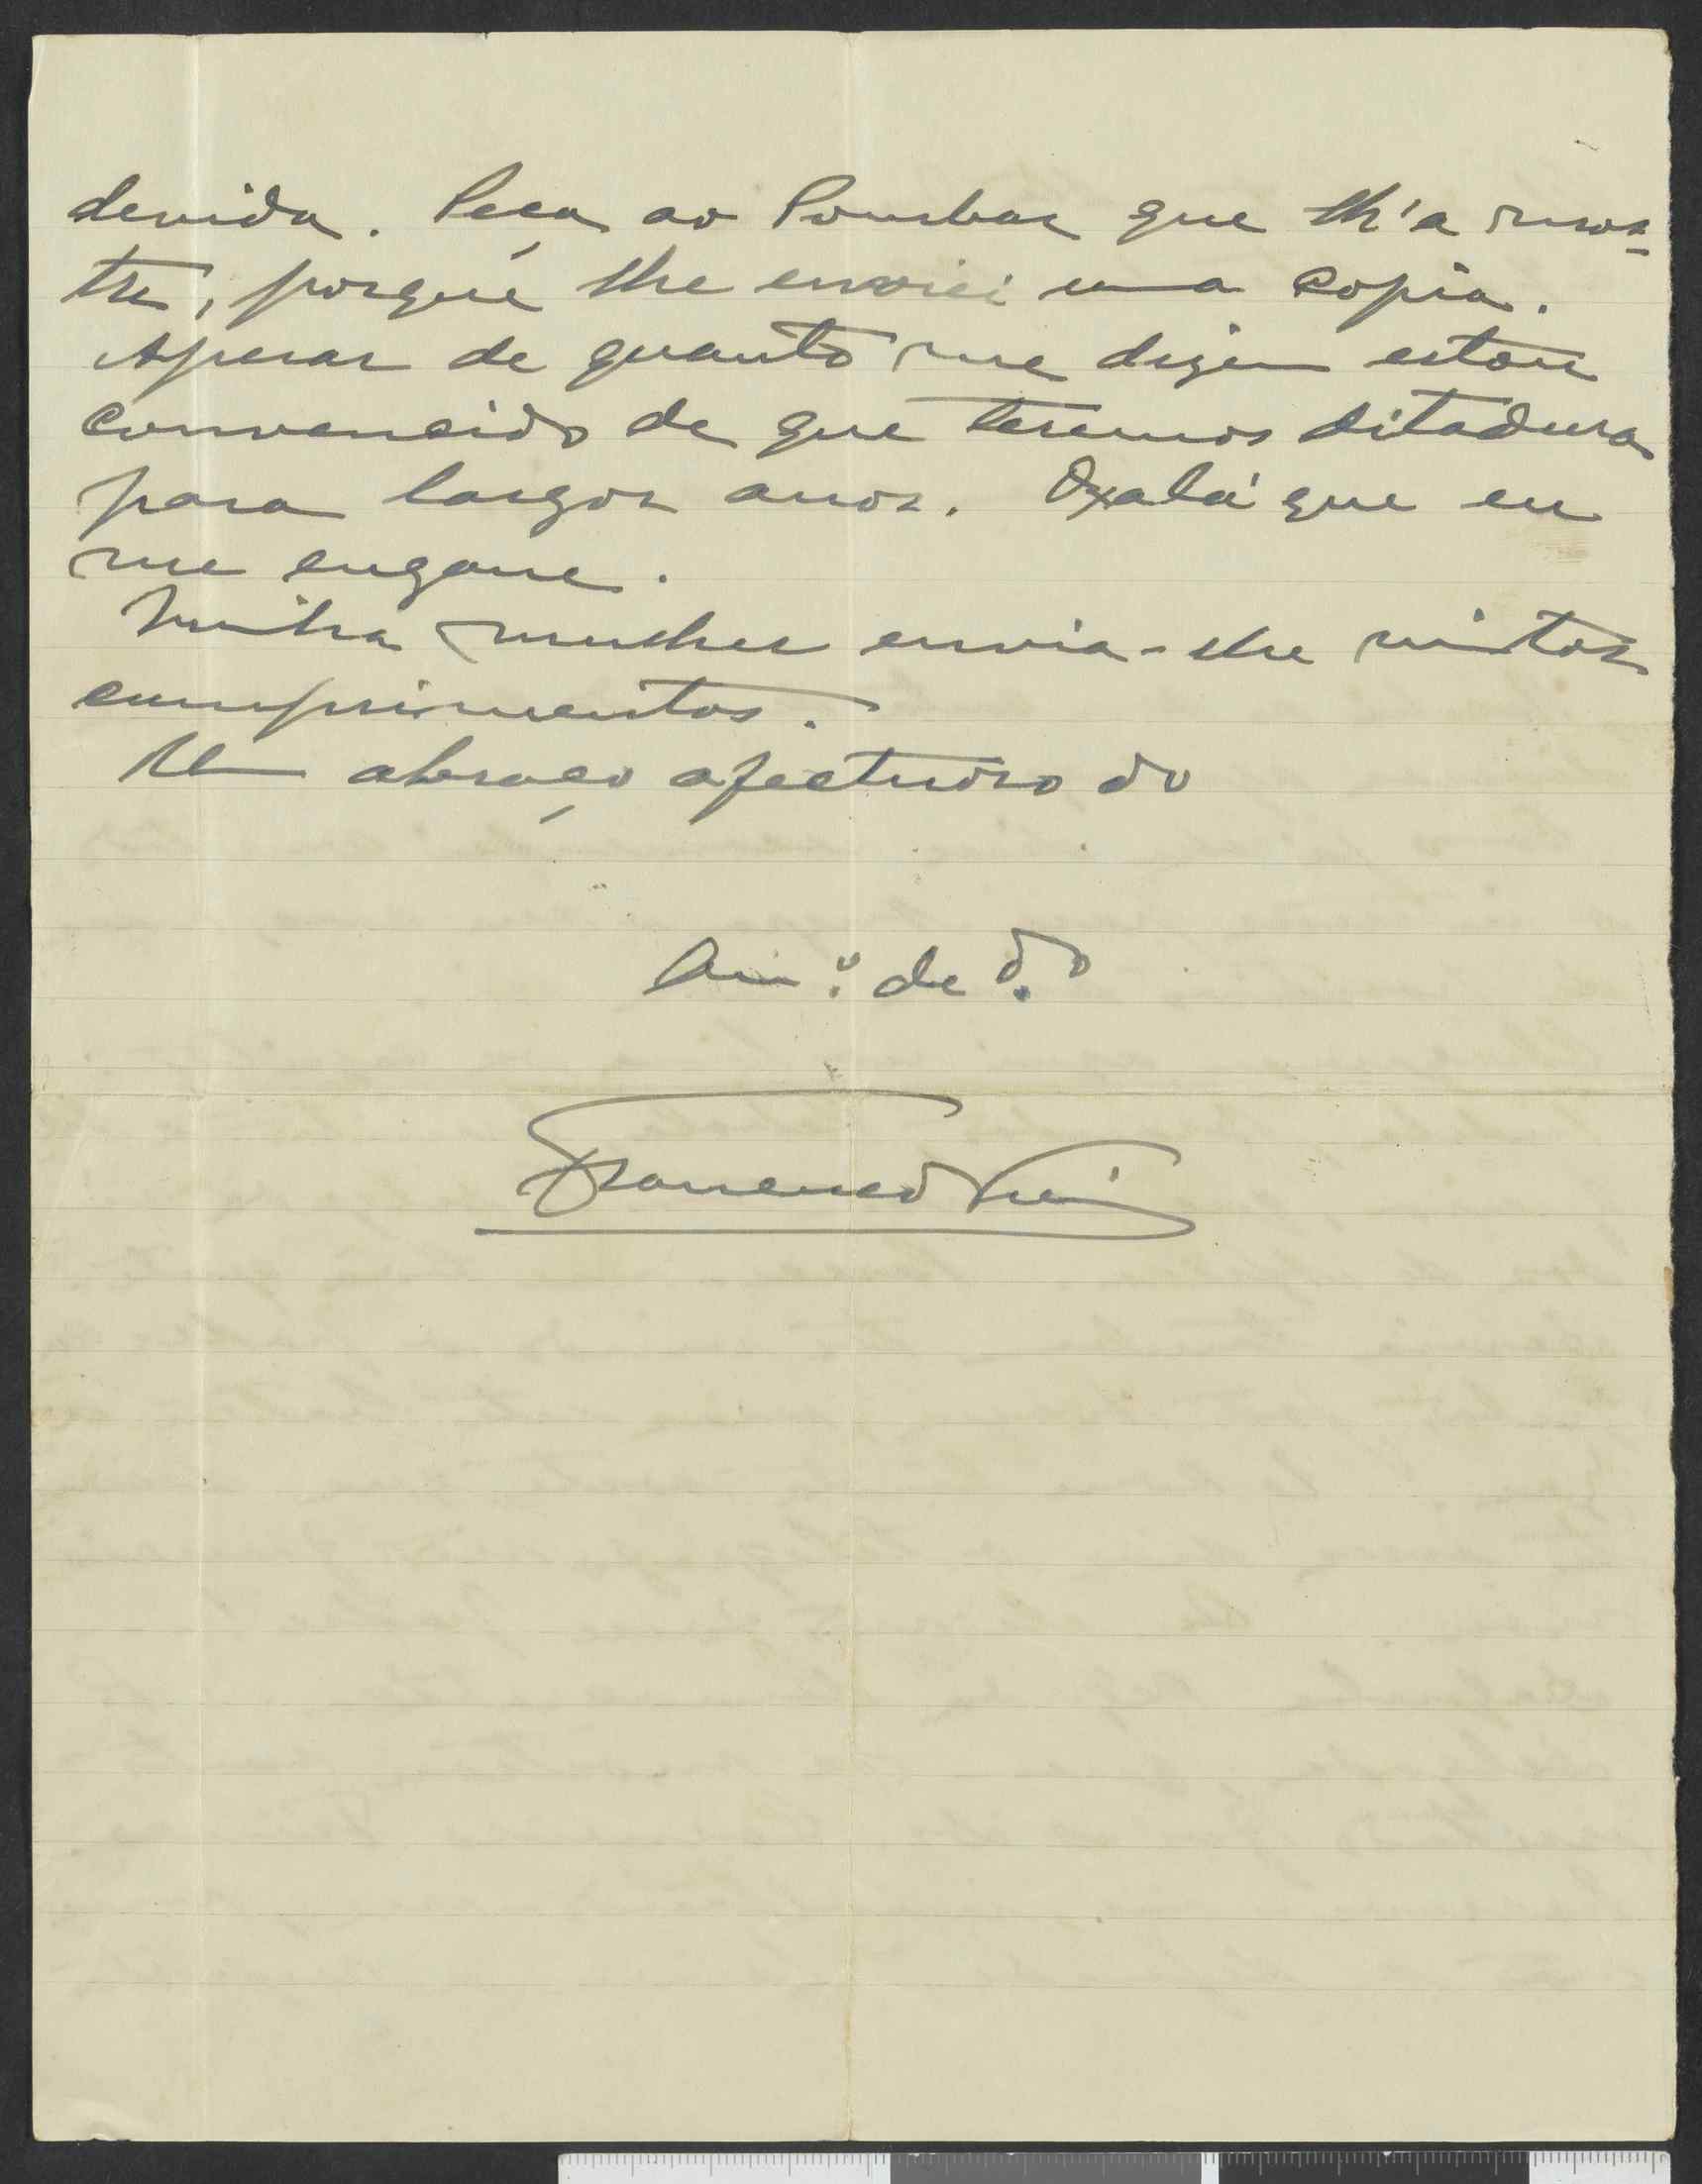 devida. Peça ao Pombal que lh'a mos-
tre, porque lhe enviei uma copia.
Apesar de quanto me dizem estou
convencido de que teremos ditadura
para largos anos. Oxalá que eu
me engane.
Minha mulher envia-lhe muitos
cumprimentos.
Um abraço afectuoso do
Am.º de
Francisco